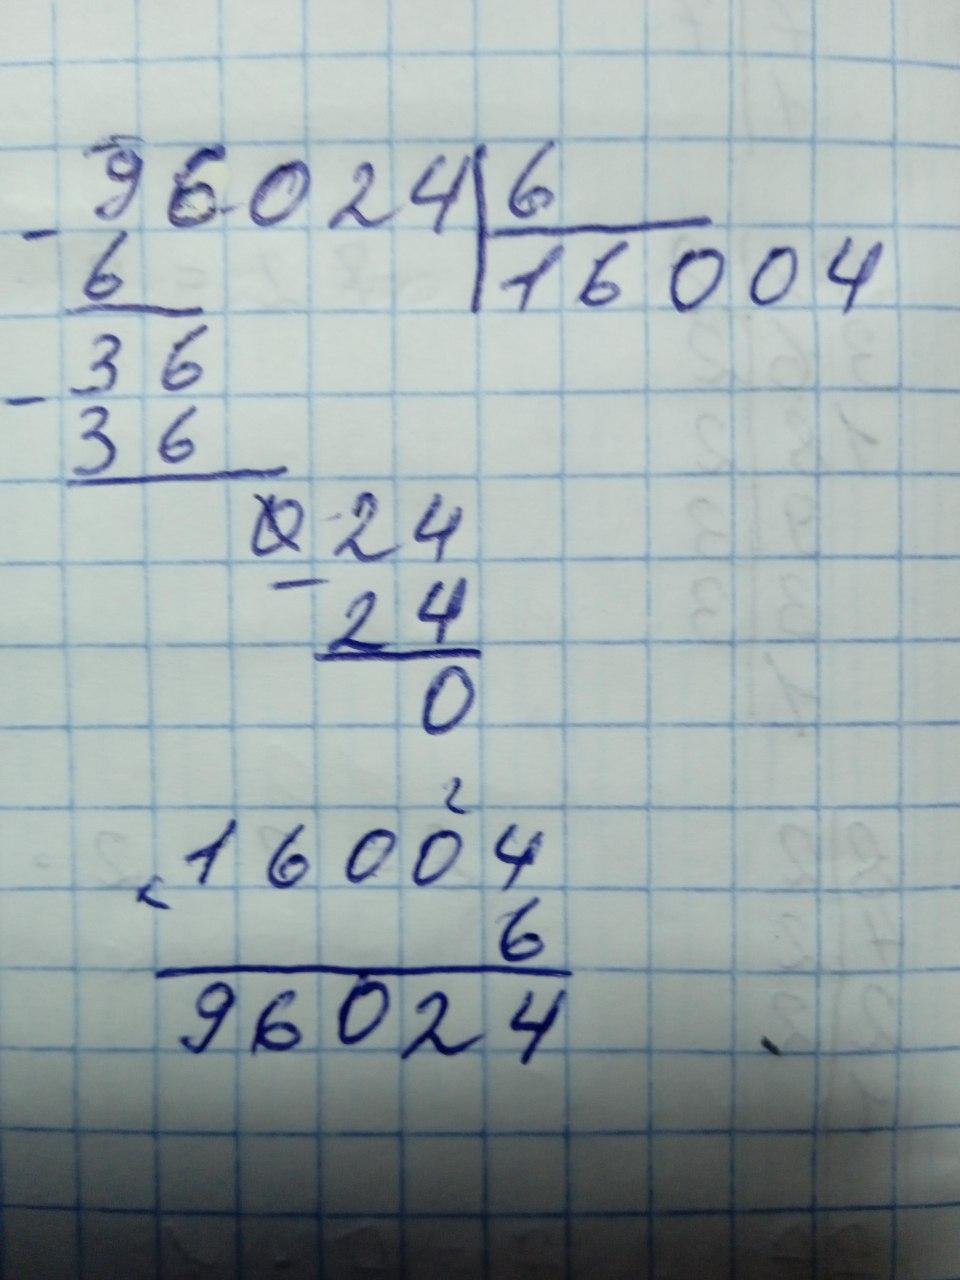 - 96024 | 6
6 16004
- 36
36
024
- 24
0
2
× 16004
6
96024